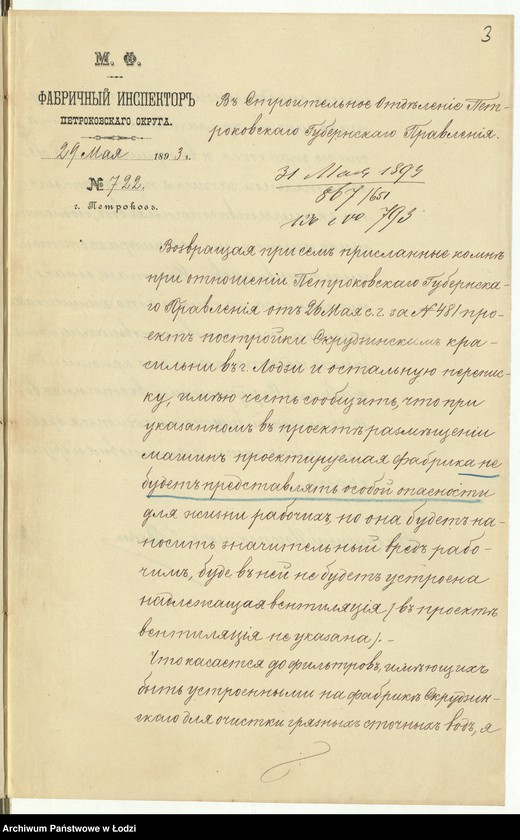 3
М. Ф.
ФАБРИЧНЫЙ ИНСПЕКТОРЪ
ПЕТРОКОВСКАГО ОКРУГА.
29 Мая 1893 г.
№ 722.
г. Петроковъ.
Въ Строительное Отдѣленіе Пет-
роковскаго Губернскаго Правленія.
31 Мая 1893
867/651
793
Возвращая при семъ присланные ко мнѣ
при отношеніи Петроковскаго Губернска-
го Правленія отъ 26 Мая с. г. за № 481 про-
ектъ постройки Скрудзинскимъ кра-
сильни въ г. Лодзи и остальную перепис-
ку, имѣю честь сообщить, что при
указанномъ въ проектѣ размѣщеніи
машинъ проектируемая фабрика не
будетъ представлять особой опасности
для жизни рабочихъ, но она будетъ на-
носить значительный вредъ рабо-
чимъ, буде въ ней не будетъ устроена
надлежащая вентиляція (въ проектѣ
вентиляція не указана). -
Что касается до фильтровъ, имѣющихъ
быть устроенными на фабрикѣ Скрудзин-
скаго для очистки грязныхъ сточныхъ водъ, я
Archiwum Państwowe w Łodzi